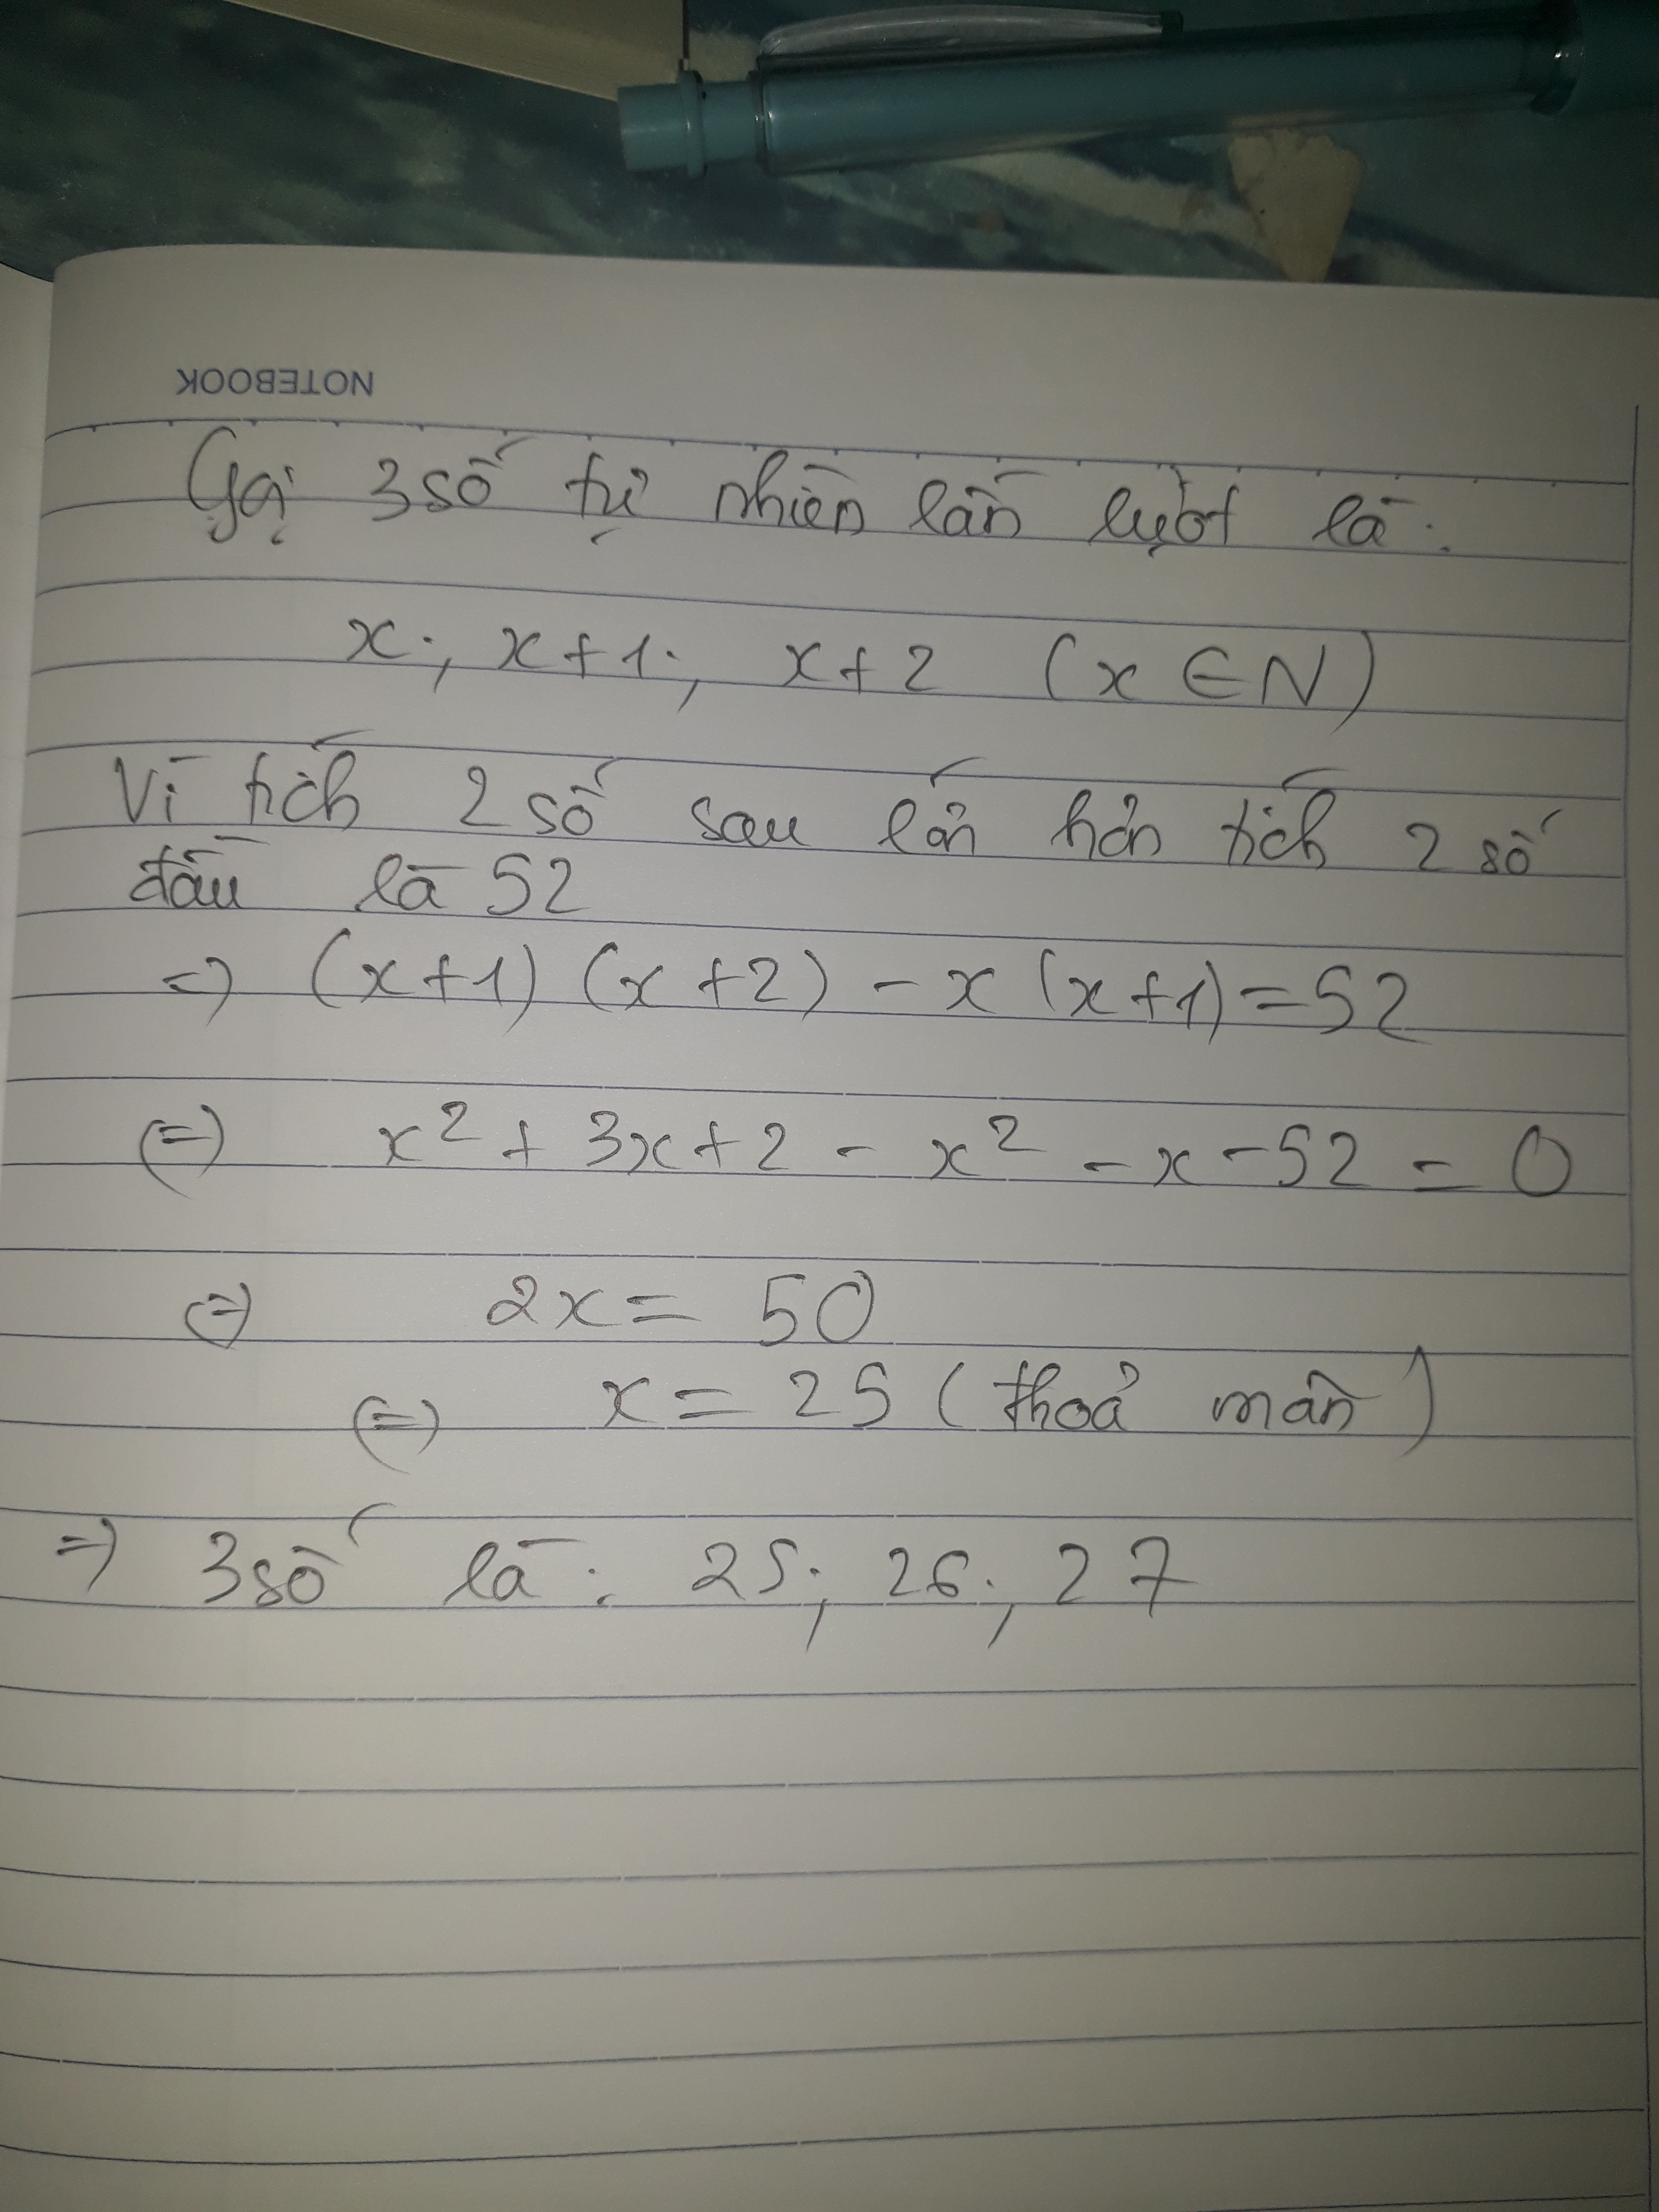 NOTEBOOK
Gọi 3 số tự nhiên lần lượt là:
x; x+1; x+2 (x ∈ N)
Vì tích 2 số sau lớn hơn tích 2 số
đầu là 52
=> (x+1) (x+2) - x (x+1) = 52
(=) x² + 3x + 2 - x² - x - 52 = 0
(=) 2x = 50
(=) x = 25 (thoả mãn)
=> 3 số là: 25; 26; 27